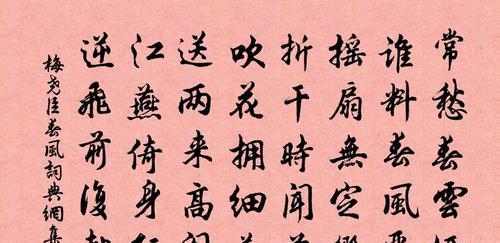 常愁春雲
誰料春風
摇扇無定
折干時聞
吹花拥细
送两来高
江燕倚身
逆飛前復
梅尧臣春風詞典網集